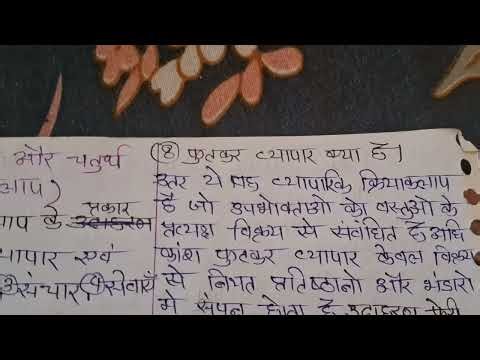 और चतुर्थ
आप)
प्रकार
आप के उदाहरण
व्यापार एवं
संचार, ④ सेवाएँ
⑧ फुटकर व्यापार क्या है।
उत्तर ये वह व्यापारिक क्रियाकलाप
है जो उपभोक्ताओ को वस्तुओ के
प्रत्यक्ष विक्रय से संबंधित है अधि
कांश फुटकर व्यापार केवल विक्रय
से नियत प्रतिष्ठानो और भंडारो
मे संपन्न होता है उदाहरण फेरी